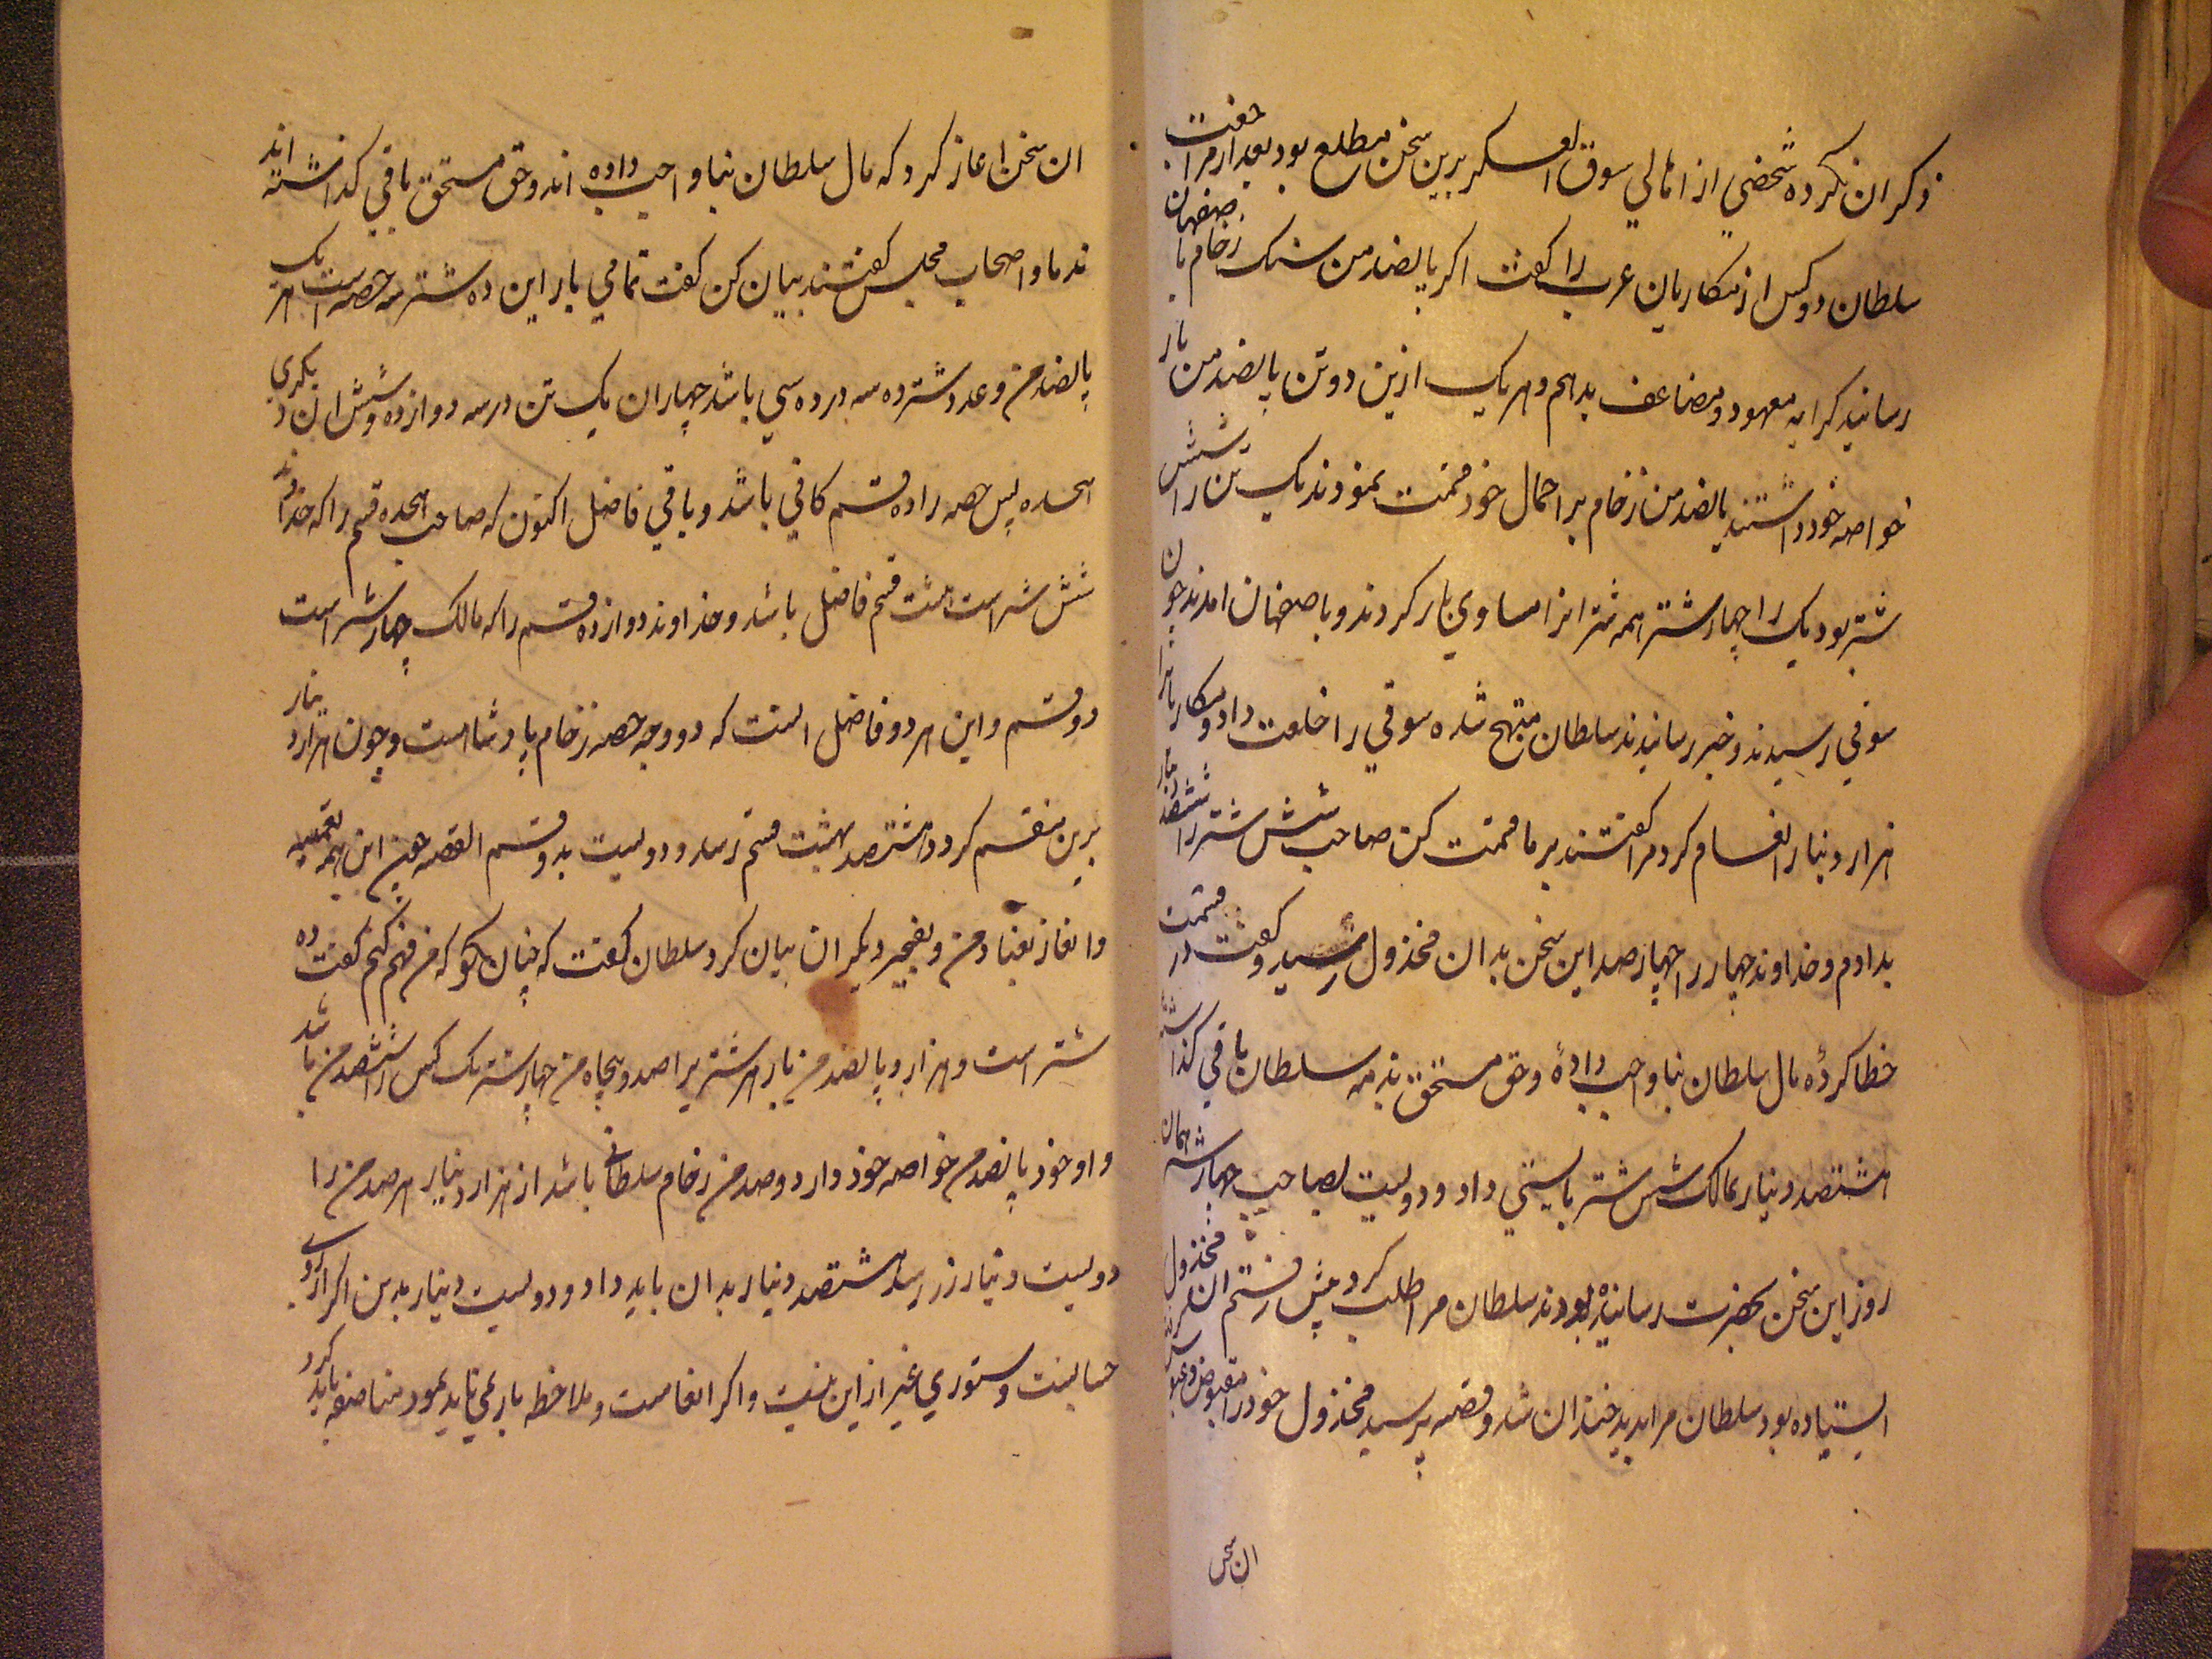 ذکر ان نکرده شخصی از اهالی سوق العسکر برین سخن مطلع بود بعد از مراجعت
سلطان دو کس از مکاریان عرب را کفت اکر پانصد من سنک رخام باصفهان
رسانید کرایه معهود مضاعف بدهم و هر یک ازین دو تن پانصد من بار
خواصه خود داشتند پانصد من رخام بر احمال خود قسمت نمودند یک تن را شش
شتر بود یک را چهار شتر همه شترانرا مساوی بار کردند و باصفهان امدند چون
سوقی رسیدند و خبر رسانیدند سلطان مبتهج شده سوقی را خلعت داد و مکاریانرا
هزار دینار انعام کرد مرا کفتند بر ما قسمت کن صاحب شش شتر را ششصد دینار
بدادم و خداوند چهار را چهارصد این سخن بدان مخذول رسید و کفت در قسمت
خطا کرده مال سلطان بناواجب داده و حق مستحق بذمه سلطان باقی کذاشته
هشتصد دینار بمالک شش شتر بایستی داد و دویست بصاحب چهار شتر همان
روز این سخن بحضرت رسانیده بودند سلطان مرا طلب کرد پیش رفتم ان مخذول
ایستاده بود سلطان مرا بدید خندان شد و قصه پرسید مخذول خود را مقبوض
ان سخن
ان سخن اغاز کرد که مال سلطان بناواجب داده اند و حق مستحق باقی کذاشته اند
ندما و اصحاب مجلس کفتند بیان کن کفت تمامی بار این ده شتر سه حصه است هر یک
پانصد من و عدد شتر ده سه در ده سی باشد چهار ان یک تن در سه دوازده و شش ان دیکری
هجده پس حصه را ده قسم کافی باشد و باقی فاضل اکنون که صاحب هجده قسم را که خداوند
شش شتر است هشت قسم فاضل باشد و خداوند دوازده قسم را که مالک چهار شتر است
دو قسم و این هر دو فاضل است که دو وجه حصه رخام پادشاهست و چون هزار دینار
برین منقسم کردد هشتصد بهشت قسم رسد و دویست بدو قسم القصه چون این همه تعمیه
و الغاز بعناد من و تعجیز دیکران بیان کرد سلطان کفت که چنان بکو که من فهم کنم کفت ده
شتر است و هزار و پانصد من بار هر شتر را صد و پنجاه من چهار شتر یک کس را ششصد من باشد
و او خود پانصد من خواصه خود دارد و صد من رخام سلطانی باشد از هزار دینار هر صد من را
دویست دینار زر رسد هشتصد دینار بدان باید داد و دویست دینار بدین اکر از روی
حسابست دستوری غیر ازین نیست و اکر انعامست و ملاحظه بار نمی باید نمود مناصفه باید کرد